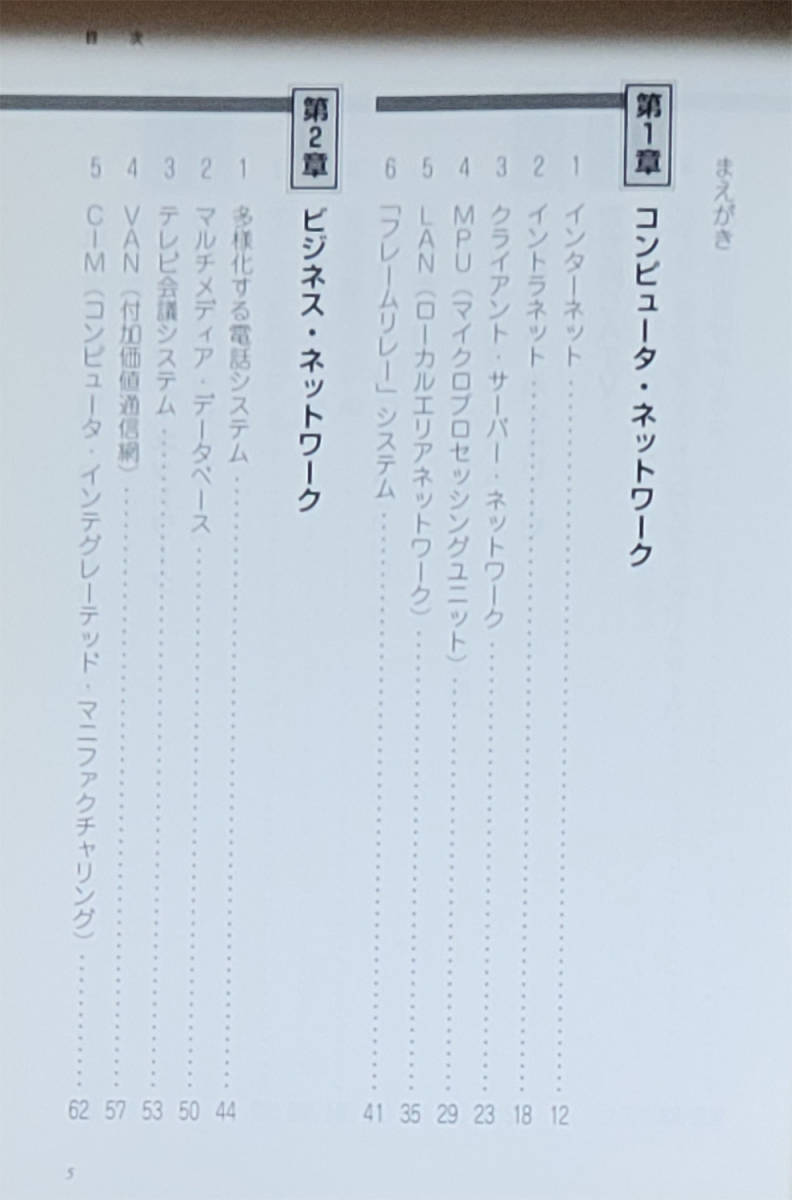 目 次
まえがき
第1章 コンピュータ・ネットワーク
1 インターネット……………………12
2 イントラネット……………………18
3 クライアント・サーバー・ネットワーク……………………23
4 MPU（マイクロプロセッシングユニット）……………………29
5 LAN（ローカルエリアネットワーク）……………………35
6 「フレームリレー」システム……………………41
第2章 ビジネス・ネットワーク
1 多様化する電話システム……………………44
2 マルチメディア・データベース……………………50
3 テレビ会議システム……………………53
4 VAN（付加価値通信網）……………………57
5 CIM（コンピュータ・インテグレーテッド・マニファクチャリング）…………62
5